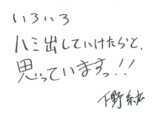 いろいろ
ハミ出していけたらと、
思っていますっ!!
下野紘